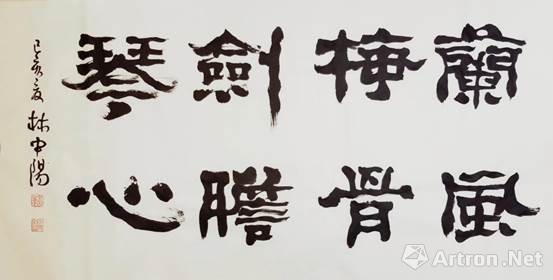 蘭風
梅骨
劍膽
琴心
己亥夏 林中陽
Artron.Net